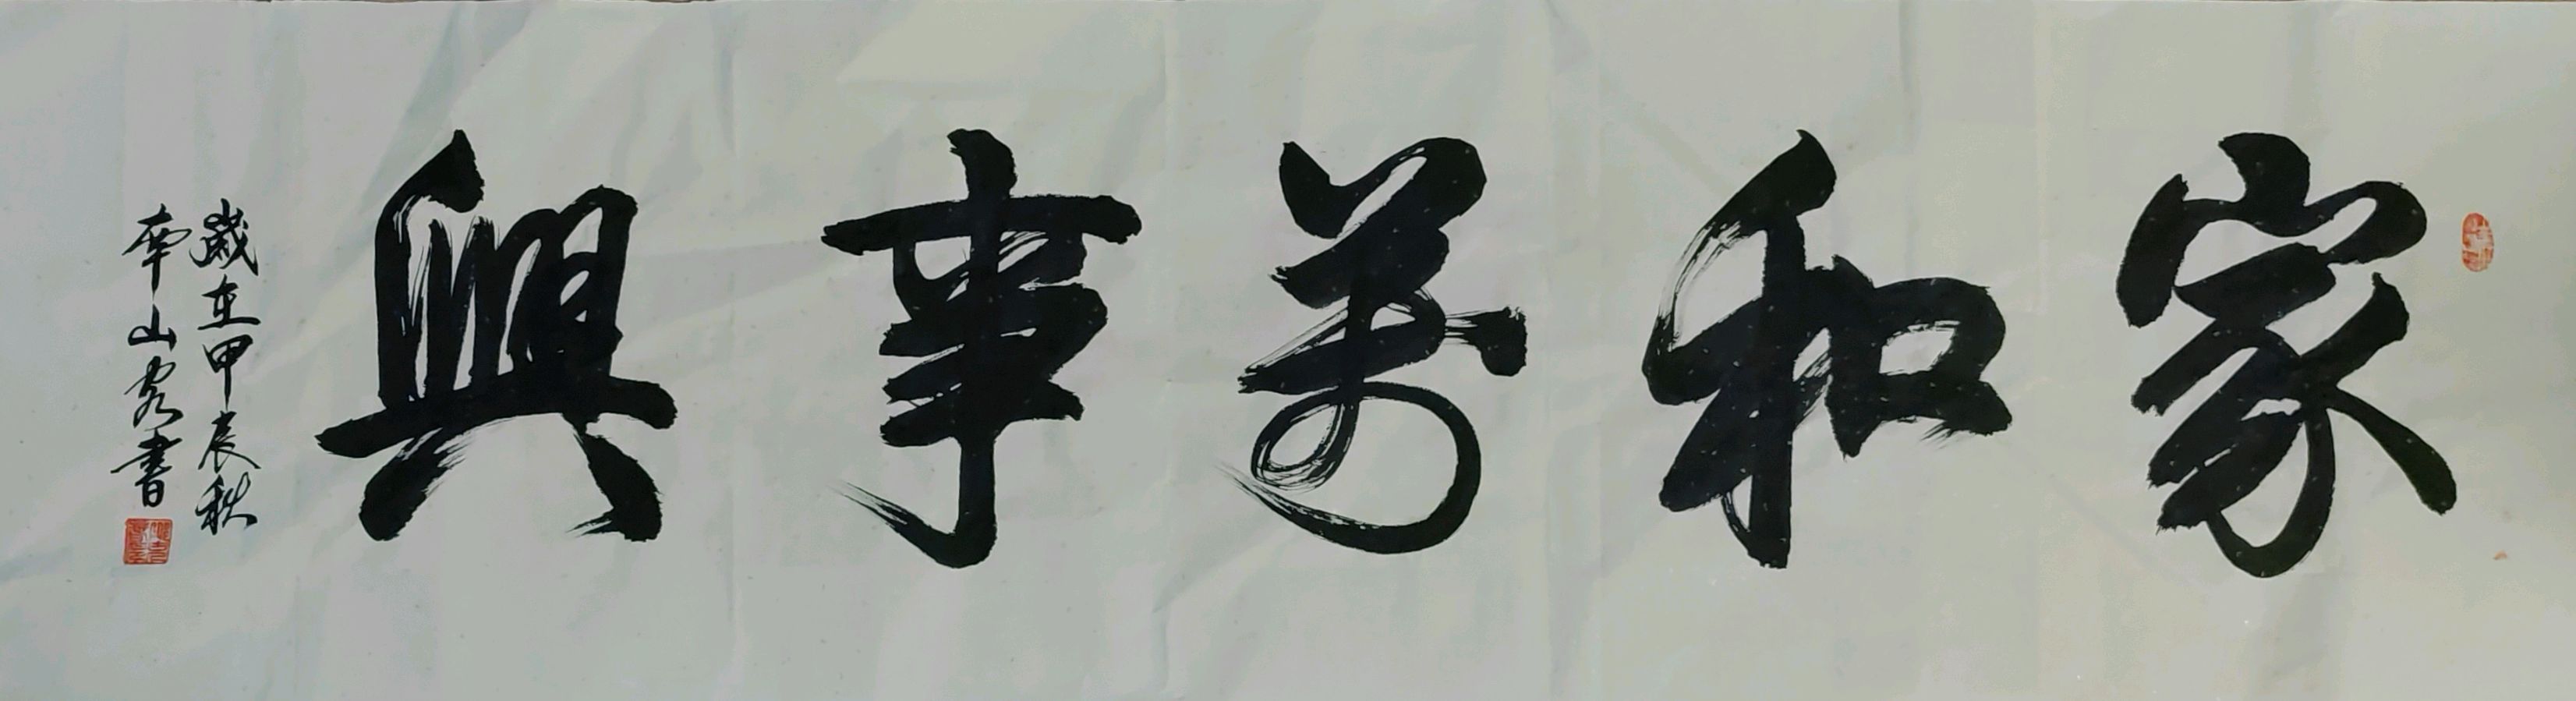 家和萬事興
歲在甲辰秋
南山客書